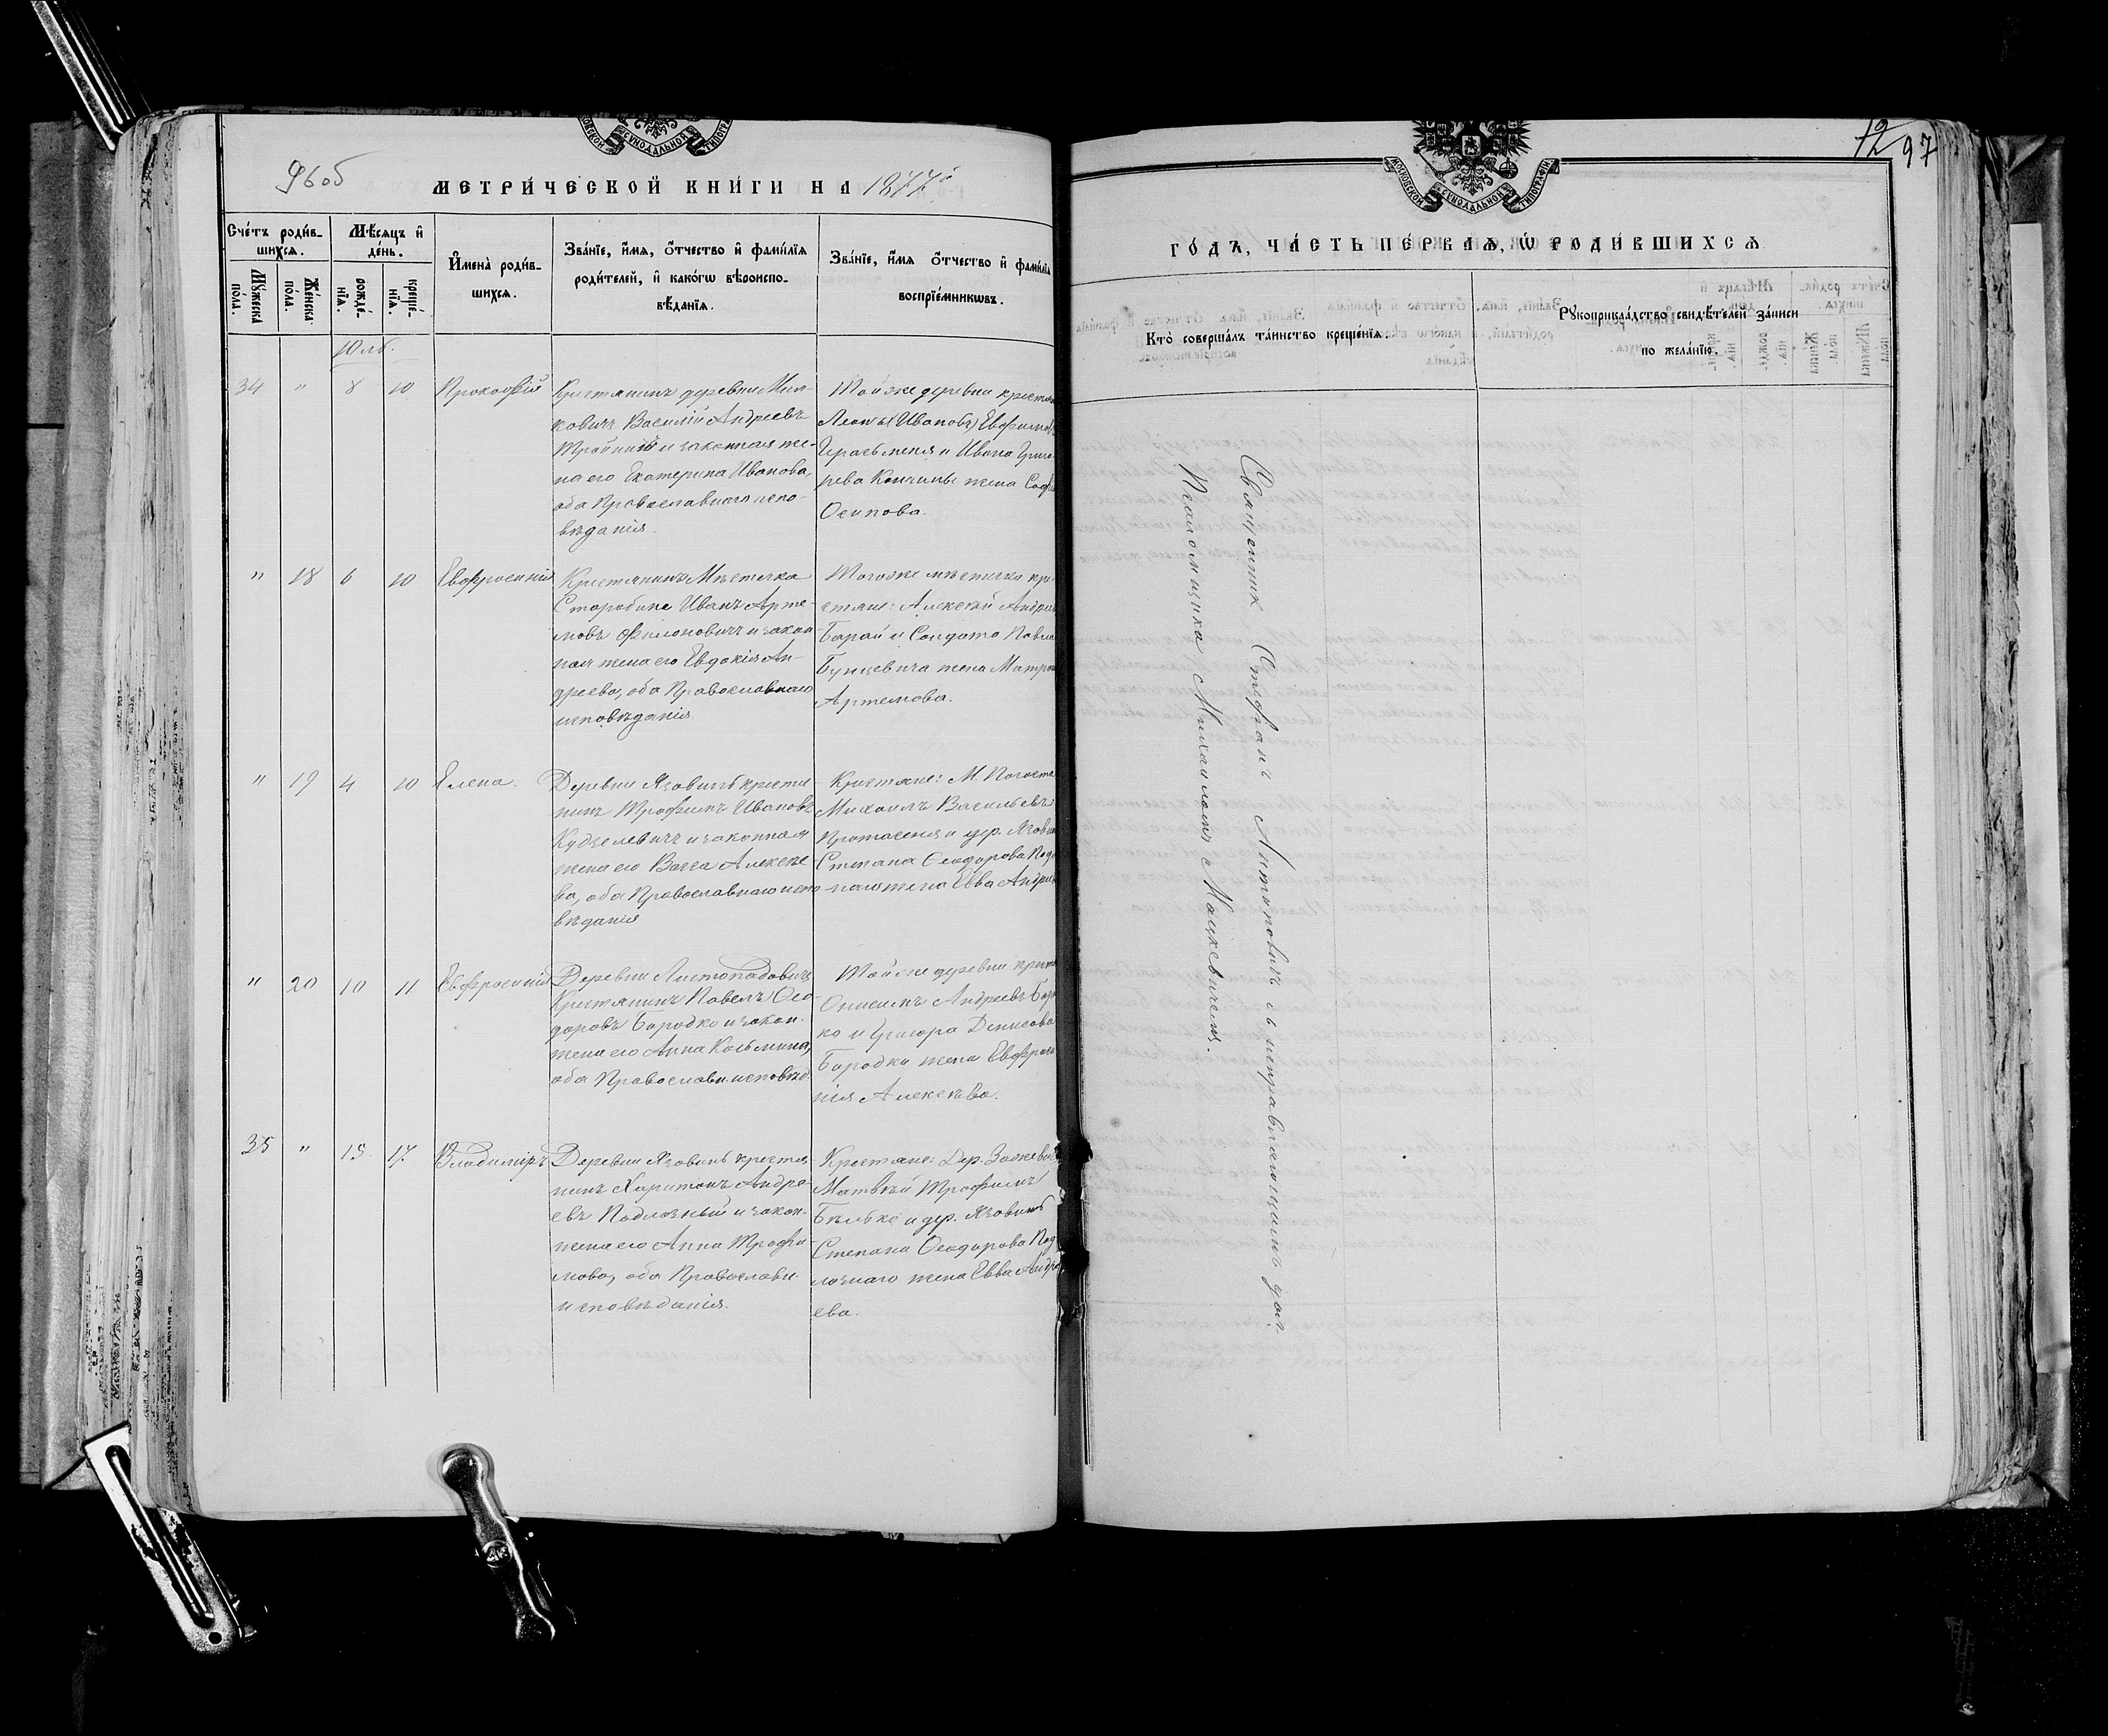 96об
МЕТРИ́ЧЕСКОЙ КНИ́ГИ НА 1877й
Сче́тъ роди́в-
шихсѧ.
Мѣ́сяцъ и҆
де́нь.
Мꙋ́жеска
по́ла.
Же́нска
по́ла.
рожде́-
нїѧ.
креще́-
нїѧ.
И҆мена̀ роди́в-
шихсѧ.
Зва́нїе, и҆́мѧ, ѻ҆́тчество и҆ фами́лїѧ
роди́телей, и҆ како́гѡ вѣроиспо-
вѣ́данїѧ.
Зва́нїе, и҆́мѧ ѻ҆́тчество и҆ фами́лїѧ
воспрїе́мникѡвъ.
Юль.
34 " 8 10 Прокофій
Крестьянинъ деревни Мил-
ковичъ Василій Андреевъ
и законная же-
на его Екатерина Иванова,
оба Православнаго испо-
вѣданія.
Той же деревни крестьян
Леонъ (Ивановъ) Ефимовъ
и Ивана Григо-
рева жена Софі
Осипова.
" 18 6 10 Евфросинія
Крестьянинъ Мѣстечка
Старобина Иванъ Арте-
мовъ Филоновичъ и закон-
ная жена его Евдокія Ан-
дреева, оба Православнаго
исповѣданія
Тогоже мѣстечка кре-
стьяне: Алексѣй Андрее
Барай и Солдата Павла
Бунцевича жена Матрон
Артемова.
" 19 4 10 Елена.
Деревни Язовинъ крестья
нинъ Трофимъ Ивановъ
Кудзелевичъ и законная
жена его Васса Алексѣе
ва, оба Православнаго испо
вѣданія
Крестьяне: М. Погоста
Михаилъ Васильевъ
Протасеня и дер. Язовин
Степана Ѳеодорова Подл
жена Евва Андре
" 20 10 11 Евфросинія
Деревни Листопадовичъ
Крестьянинъ Павелъ Ѳео-
доровъ Бородко и закон.
жена его Анна Козьмина,
оба Православн. исповѣд.
Той же деревни крестья
Онисимъ Андреевъ Бород
ко и Григора Денисова
Бородки жена Евфроси
нія Алексѣева.
35 " 15 17 Владиміръ
Деревни Язовинъ крестья
нинъ Харитонъ Андре-
евъ Подлозный и закон.
жена его Анна Трофи-
мова, оба Православн.
исповѣданія.
Крестьяне: Дер. Заже
Матвѣй Трофимъ
Бѣлько и дер. Язовинъ
Степана Ѳеодорова Под
лознаго жена Евва Андре
ева.
12 97
МОСКОВСКОЙ СѴНОДАЛЬНОЙ ТИПОГРАФІИ
ГО́ДЪ, ЧА́СТЬ ПЕ́РВАѦ, Ѡ҆ РОДИ́ВШИХСѦ
Кто̀ соверша́лъ та́инство креще́нїѧ.
Рꙋкоприкла́дство свидѣ́телей за́писи
по жела́нїю.
Священник Стефанъ Литиновичъ съ исправляющимъ дол.
Псаломщика Михаиломъ Мацкевичемъ.